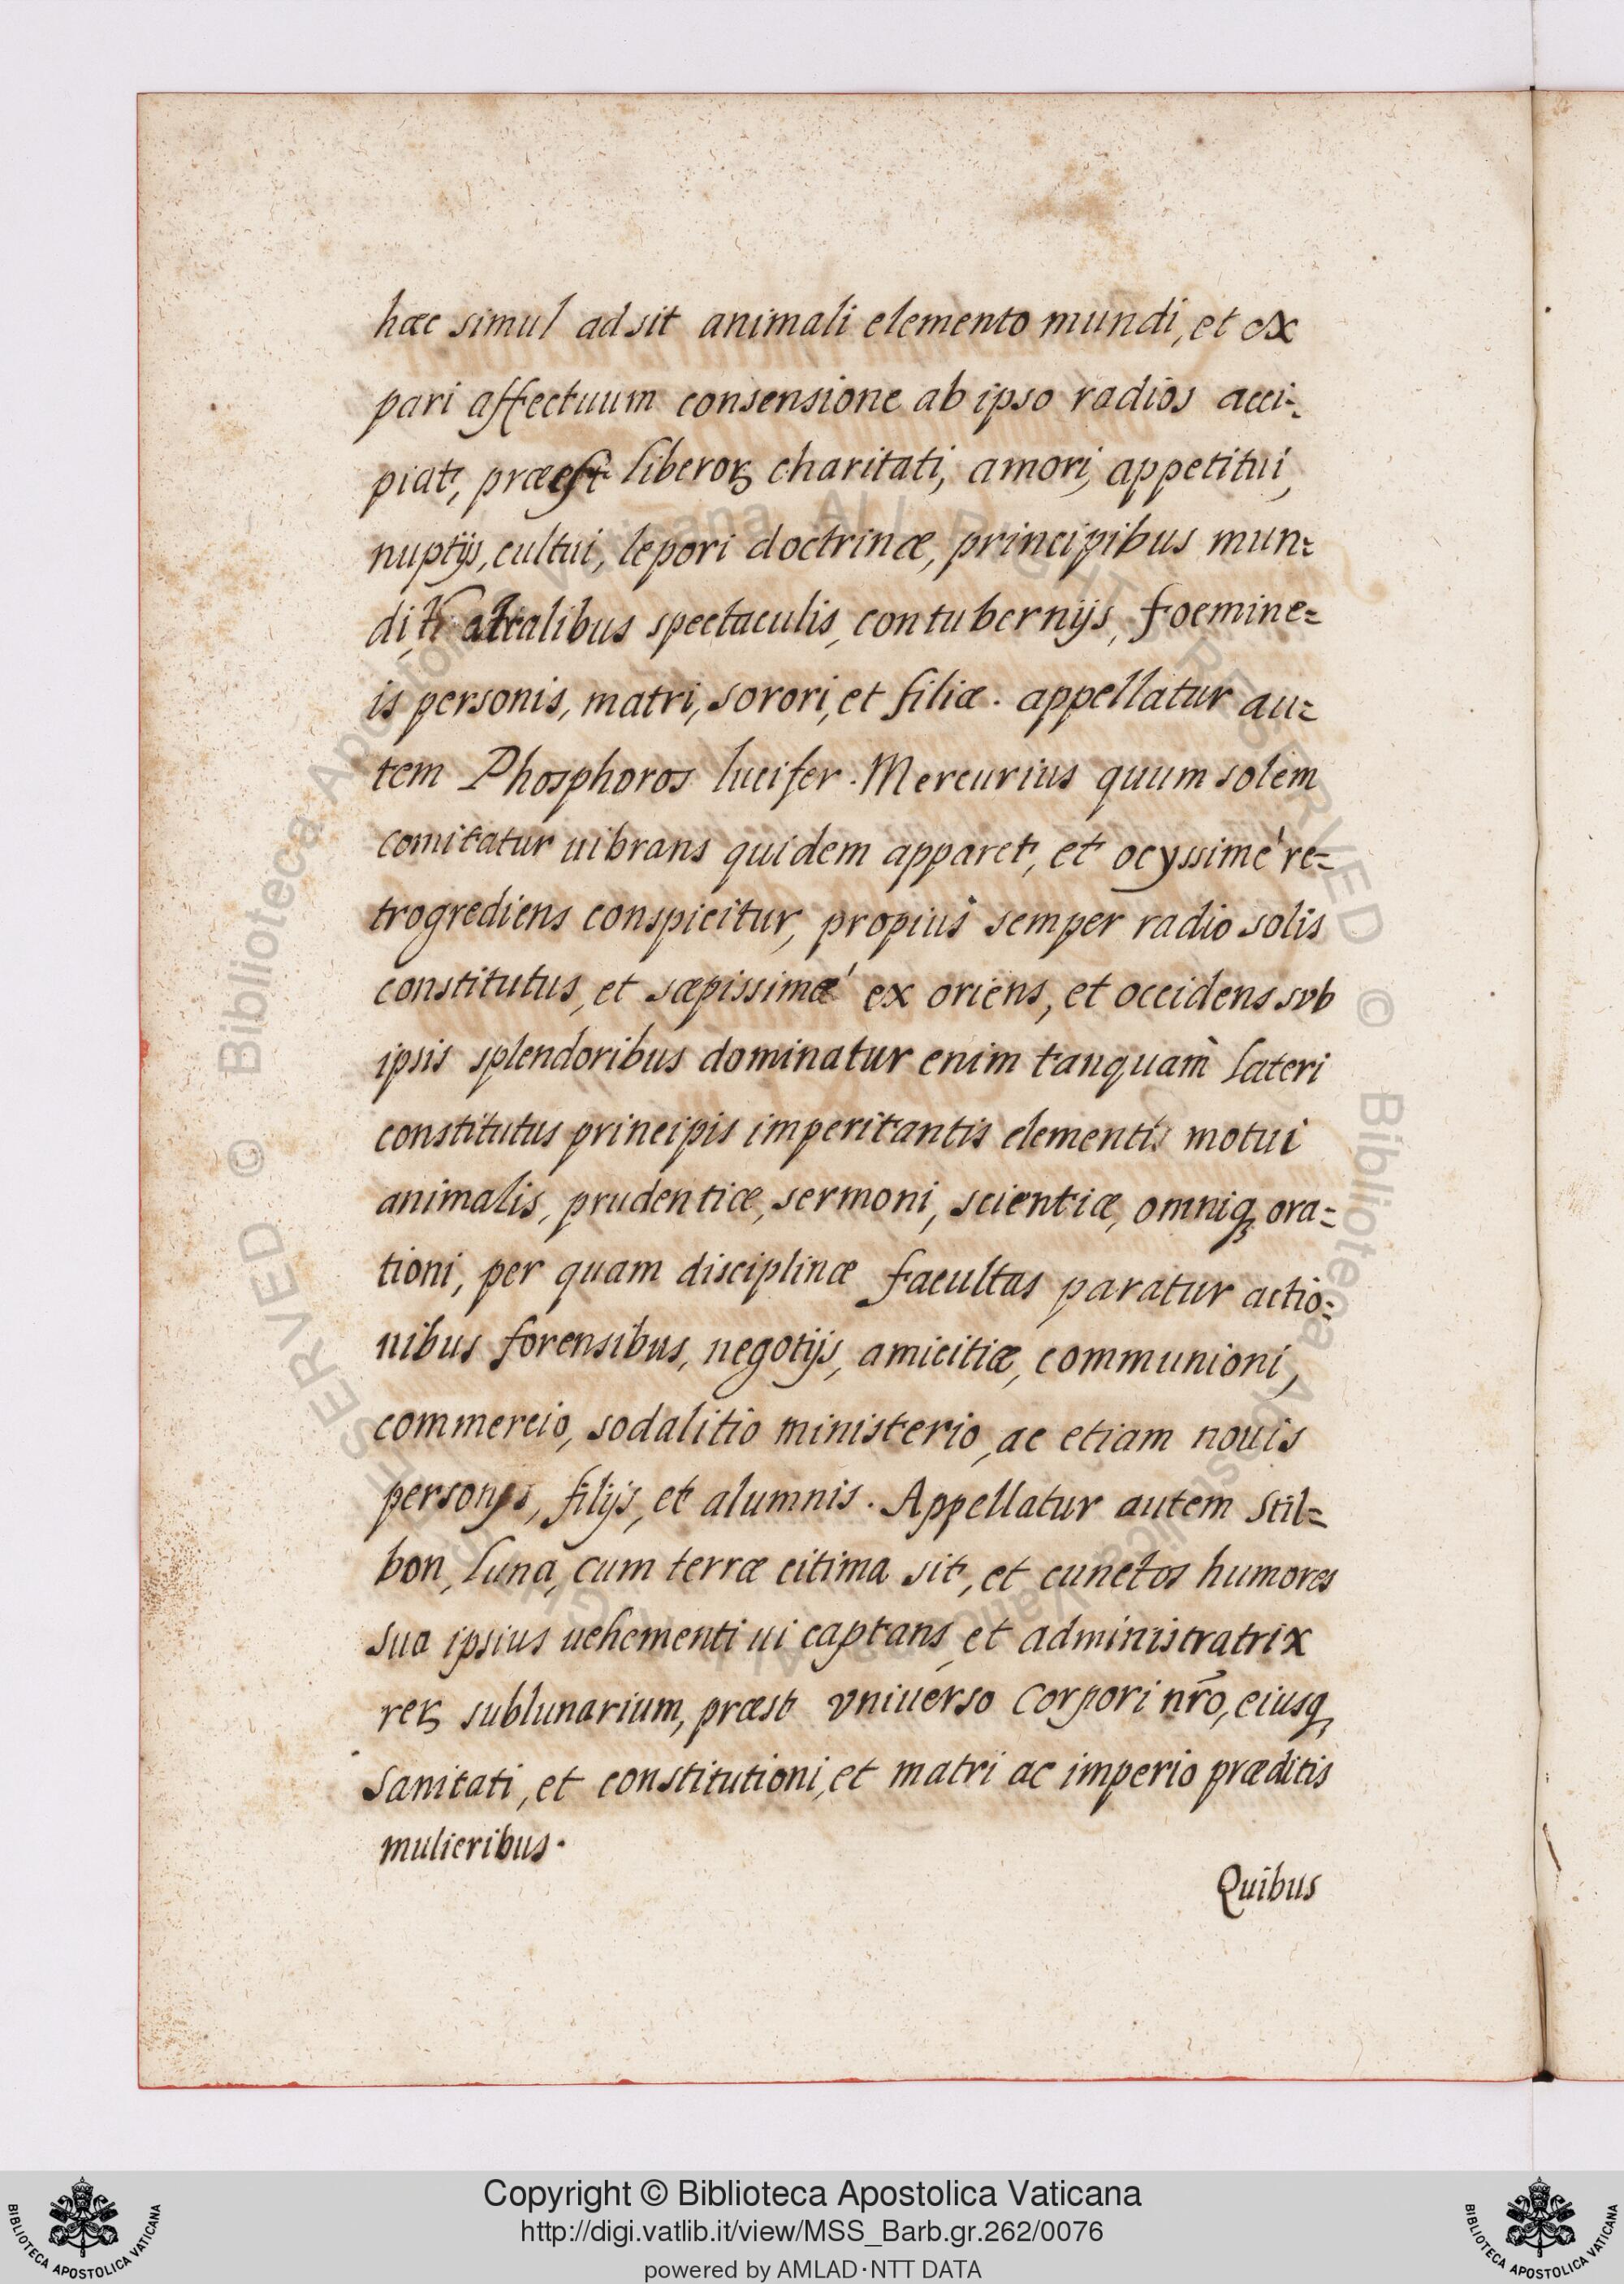 hæc simul adsit animali elemento mundi, et ex
pari affectuum consensione ab ipso radios acci-
piat, præest liberoꝝ charitati, amori, appetitui,
nuptijs, cultui, lepori doctrinæ, principibus mun=
di, atralibus spectaculis, contubernijs, foemine=
is personis, matri, sorori, et filiæ. appellatur au=
tem Phosphoros lucifer. Mercurius quum solem
comitatur uibrans quidem apparet, et ocyssimè re=
trogrediens conspicitur, propius semper radio solis
constitutus, et sæpissimæ ex oriens, et occidens svb
ipsis splendoribus dominatur enim tanquam lateri
constitutus principis imperitantis elementis motui
animalis, prudentiæ, sermoni, scientiæ, omniqꝫ ora=
tioni, per quam disciplinæ facultas paratur actio=
nibus forensibus, negotijs, amicitiæ, communioni,
commercio, sodalitio ministerio, ac etiam nouis
personis, filijs, et alumnis. Appellatur autem Stil=
bon, Luna, cum terræ citima sit, et cunctos humores
sua ipsius uehementi ui captans, et administratrix
reꝝ sublunarium, præst vniuerso Corpori nr̃o, eiusqꝫ
Sanitati, et constitutioni, et matri ac imperio præditis
mulieribus.
Quibus
© Biblioteca Apostolica Vaticana ALL RIGHTS RESERVED © Biblioteca Apostolica Vaticana ALL RIGHTS RESERVED
Copyright © Biblioteca Apostolica Vaticana
http://digi.vatlib.it/view/MSS_Barb.gr.262/0076
powered by AMLAD·NTT DATA
BIBLIOTECA APOSTOLICA VATICANA
BIBLIOTECA APOSTOLICA VATICANA